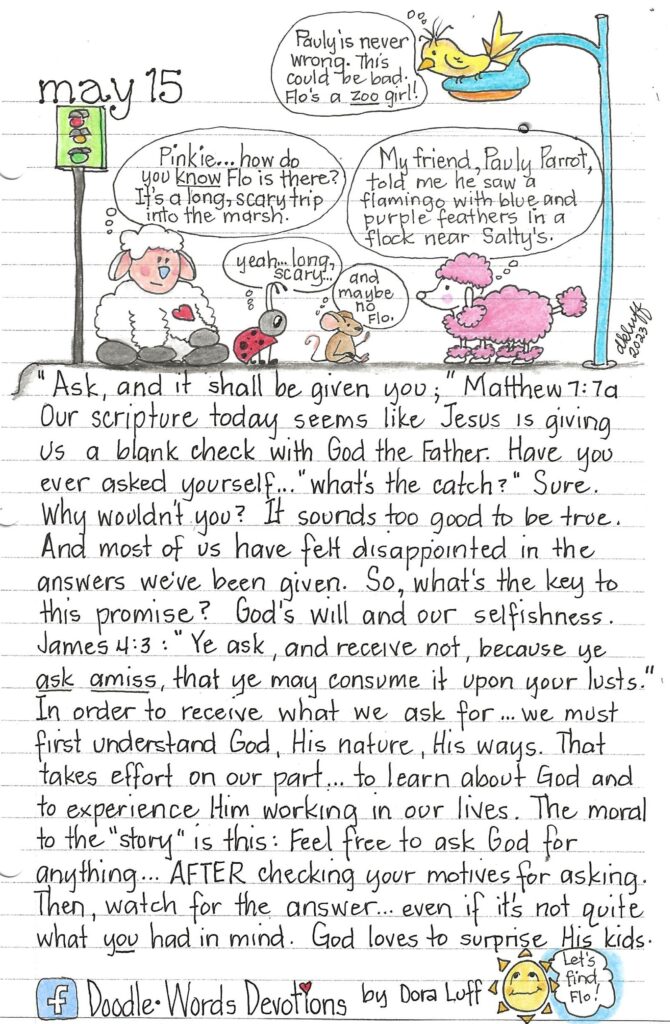 may 15
Pauly is never
wrong. This
could be bad.
Flo's a zoo girl!
Pinkie... how do
you know Flo is there?
It's a long, scary trip
into the marsh.
My friend, Pauly Parrot,
told me he saw a
flamingo with blue and
purple feathers in a
flock near Salty's.
yeah... long,
scary...
and
maybe
no
Flo.
dkluff
2023
"Ask, and it shall be given you;" Matthew 7:7a
Our scripture today seems like Jesus is giving
us a blank check with God the Father. Have you
ever asked yourself... "what's the catch?" Sure.
Why wouldn't you? It sounds too good to be true.
And most of us have felt disappointed in the
answers we've been given. So, what's the key to
this promise? God's will and our selfishness.
James 4:3 : "Ye ask, and receive not, because ye
ask amiss, that ye may consume it upon your lusts."
In order to receive what we ask for... we must
first understand God, His nature, His ways. That
takes effort on our part... to learn about God and
to experience Him working in our lives. The moral
to the "story" is this: Feel free to ask God for
anything... AFTER checking your motives for asking.
Then, watch for the answer... even if it's not quite
what you had in mind. God loves to surprise His kids.
f Doodle•Words Devotions by Dora Luff
Let's
find
Flo!